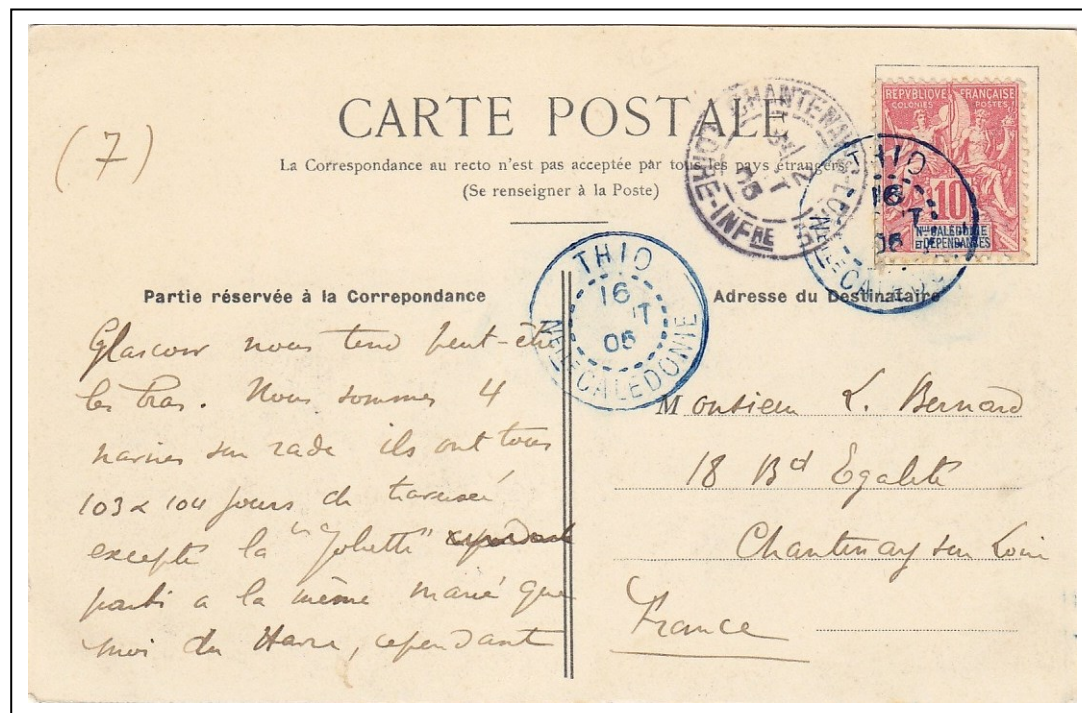 (7)
CARTE POSTALE
La Correspondance au recto n'est pas acceptée par tous les pays étrangers
(Se renseigner à la Poste)
REPVBLIQVE FRANÇAISE
COLONIES POSTES
10
NLLE CALEDONIE
ET DEPENDANCES
THIO
16
05
NELLE CALEDONIE
CHANTENAY-S-LOIRE
LOIRE-INFRE
THIO
16
05
NELLE CALEDONIE
Partie réservée à la Correpondance
Glascow nous tend peut-être
les bras. Nous sommes 4
navires sur rade ils ont tous
103 à 104 jours de traversée
excepté la "Joliette" cependant
parti a la même marée que
moi du Havre, cependant
Adresse du Destinataire
Monsieur L. Bernard
18 Bd Egalité
Chantenay sur Loire
France